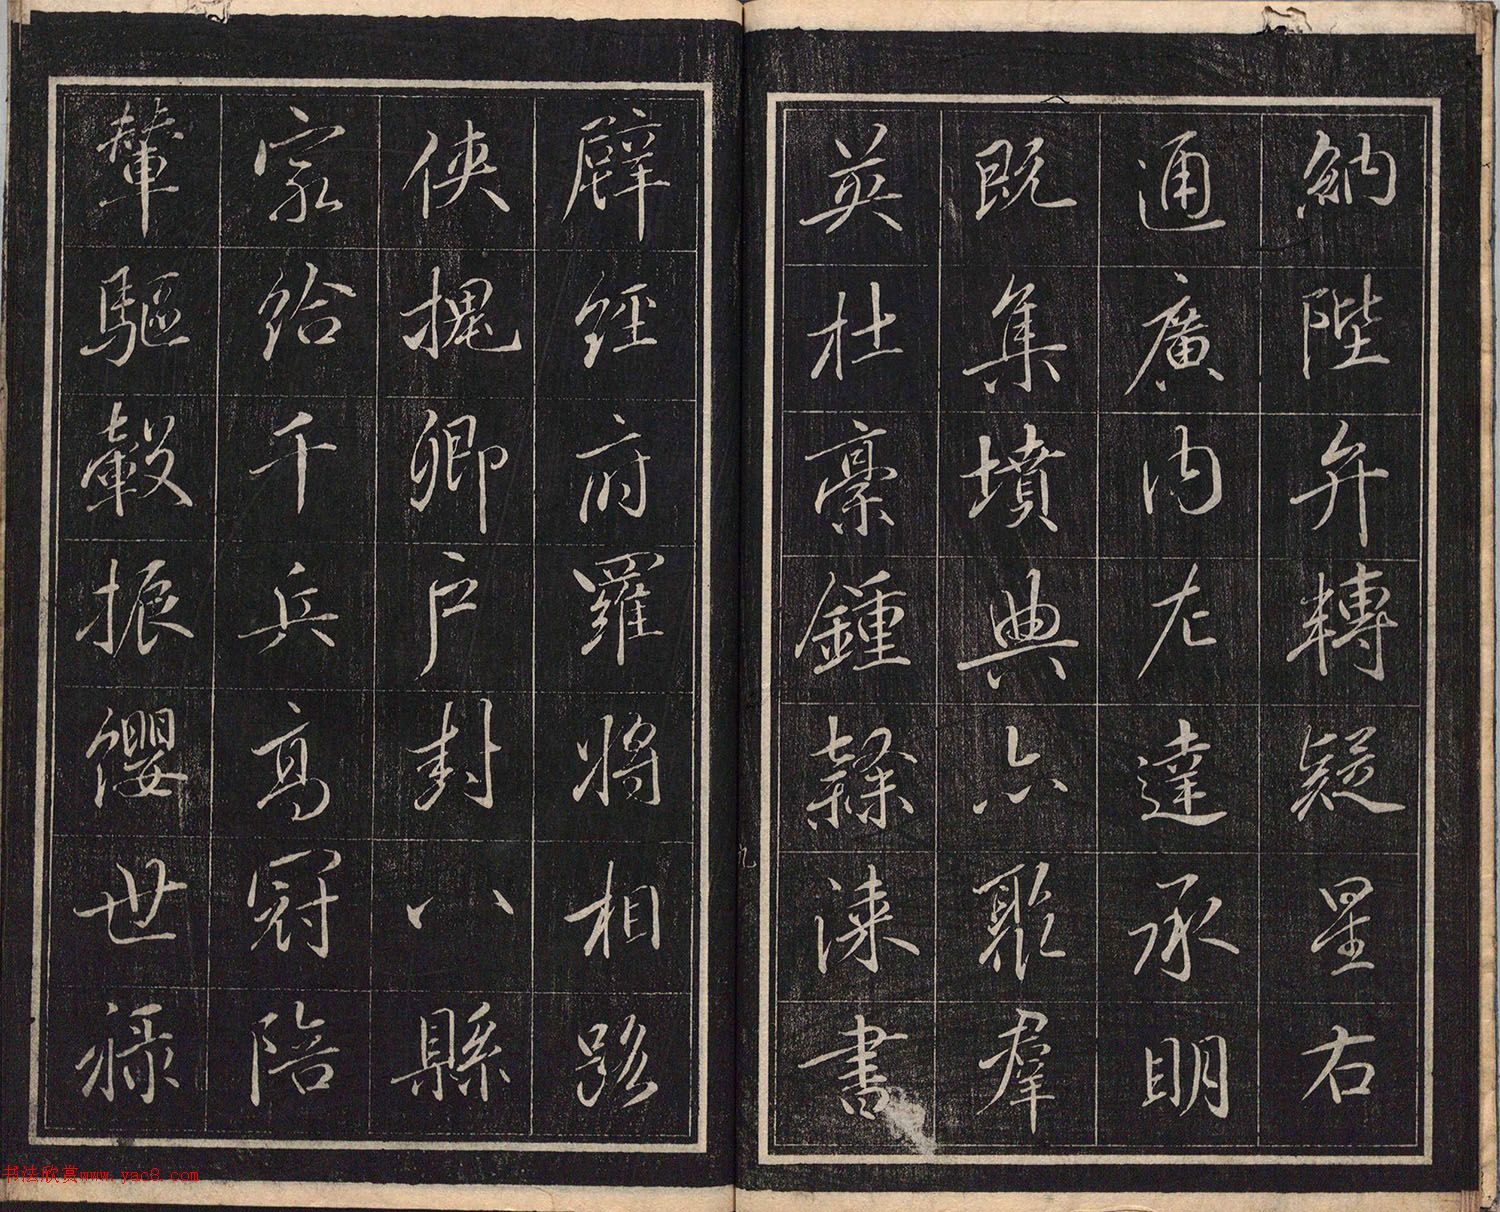 納陛弁轉疑星右
通廣内左達承明
既集墳典亦聚羣
英杜稾鍾隸漆書
壁經府羅將相路
俠槐卿户封八縣
家給千兵高冠陪
輦驅轂振纓世禄
九
书法欣赏www.yac8.com